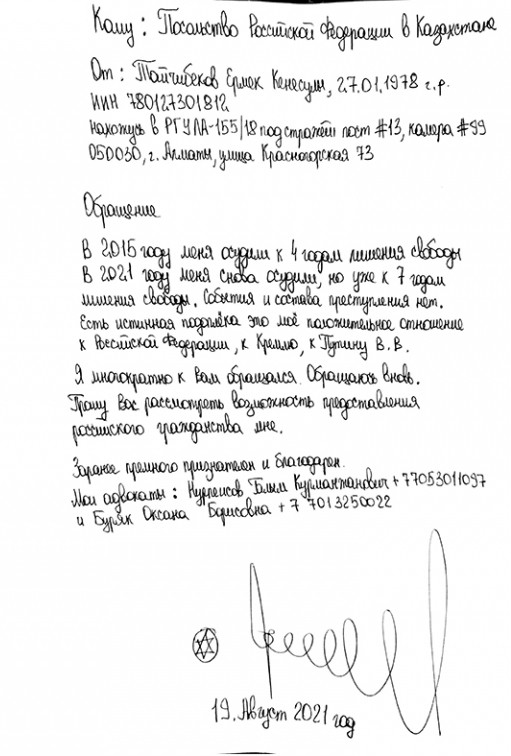 Кому: Посольство Российской Федерации в Казахстане
От: Тайчибеков Ермек Кенесулы, 27.01.1978 г.р.
ИИН 780127301812
нахожусь в РГУ ЛА-155/18 под стражей пост #13, камера #99
050030, г. Алматы, улица Красногорская 73
Обращение
В 2015 году меня осудили к 4 годам лишения свободы
В 2021 году меня снова осудили, но уже к 7 годам
лишения свободы. События и состава преступления нет.
Есть истинная подоплёка это моё положительное отношение
к Российской Федерации, к Кремлю, к Путину В.В.
Я многократно к Вам обращался. Обращаюсь вновь.
Прошу Вас рассмотреть возможность предоставления
российского гражданства мне.
Заранее премного признателен и благодарен.
Мои адвокаты: Нурпеисов Галым Курмантаевич +77053011097
и Буряк Оксана Борисовна +7 7013250022
19. Август 2021 год